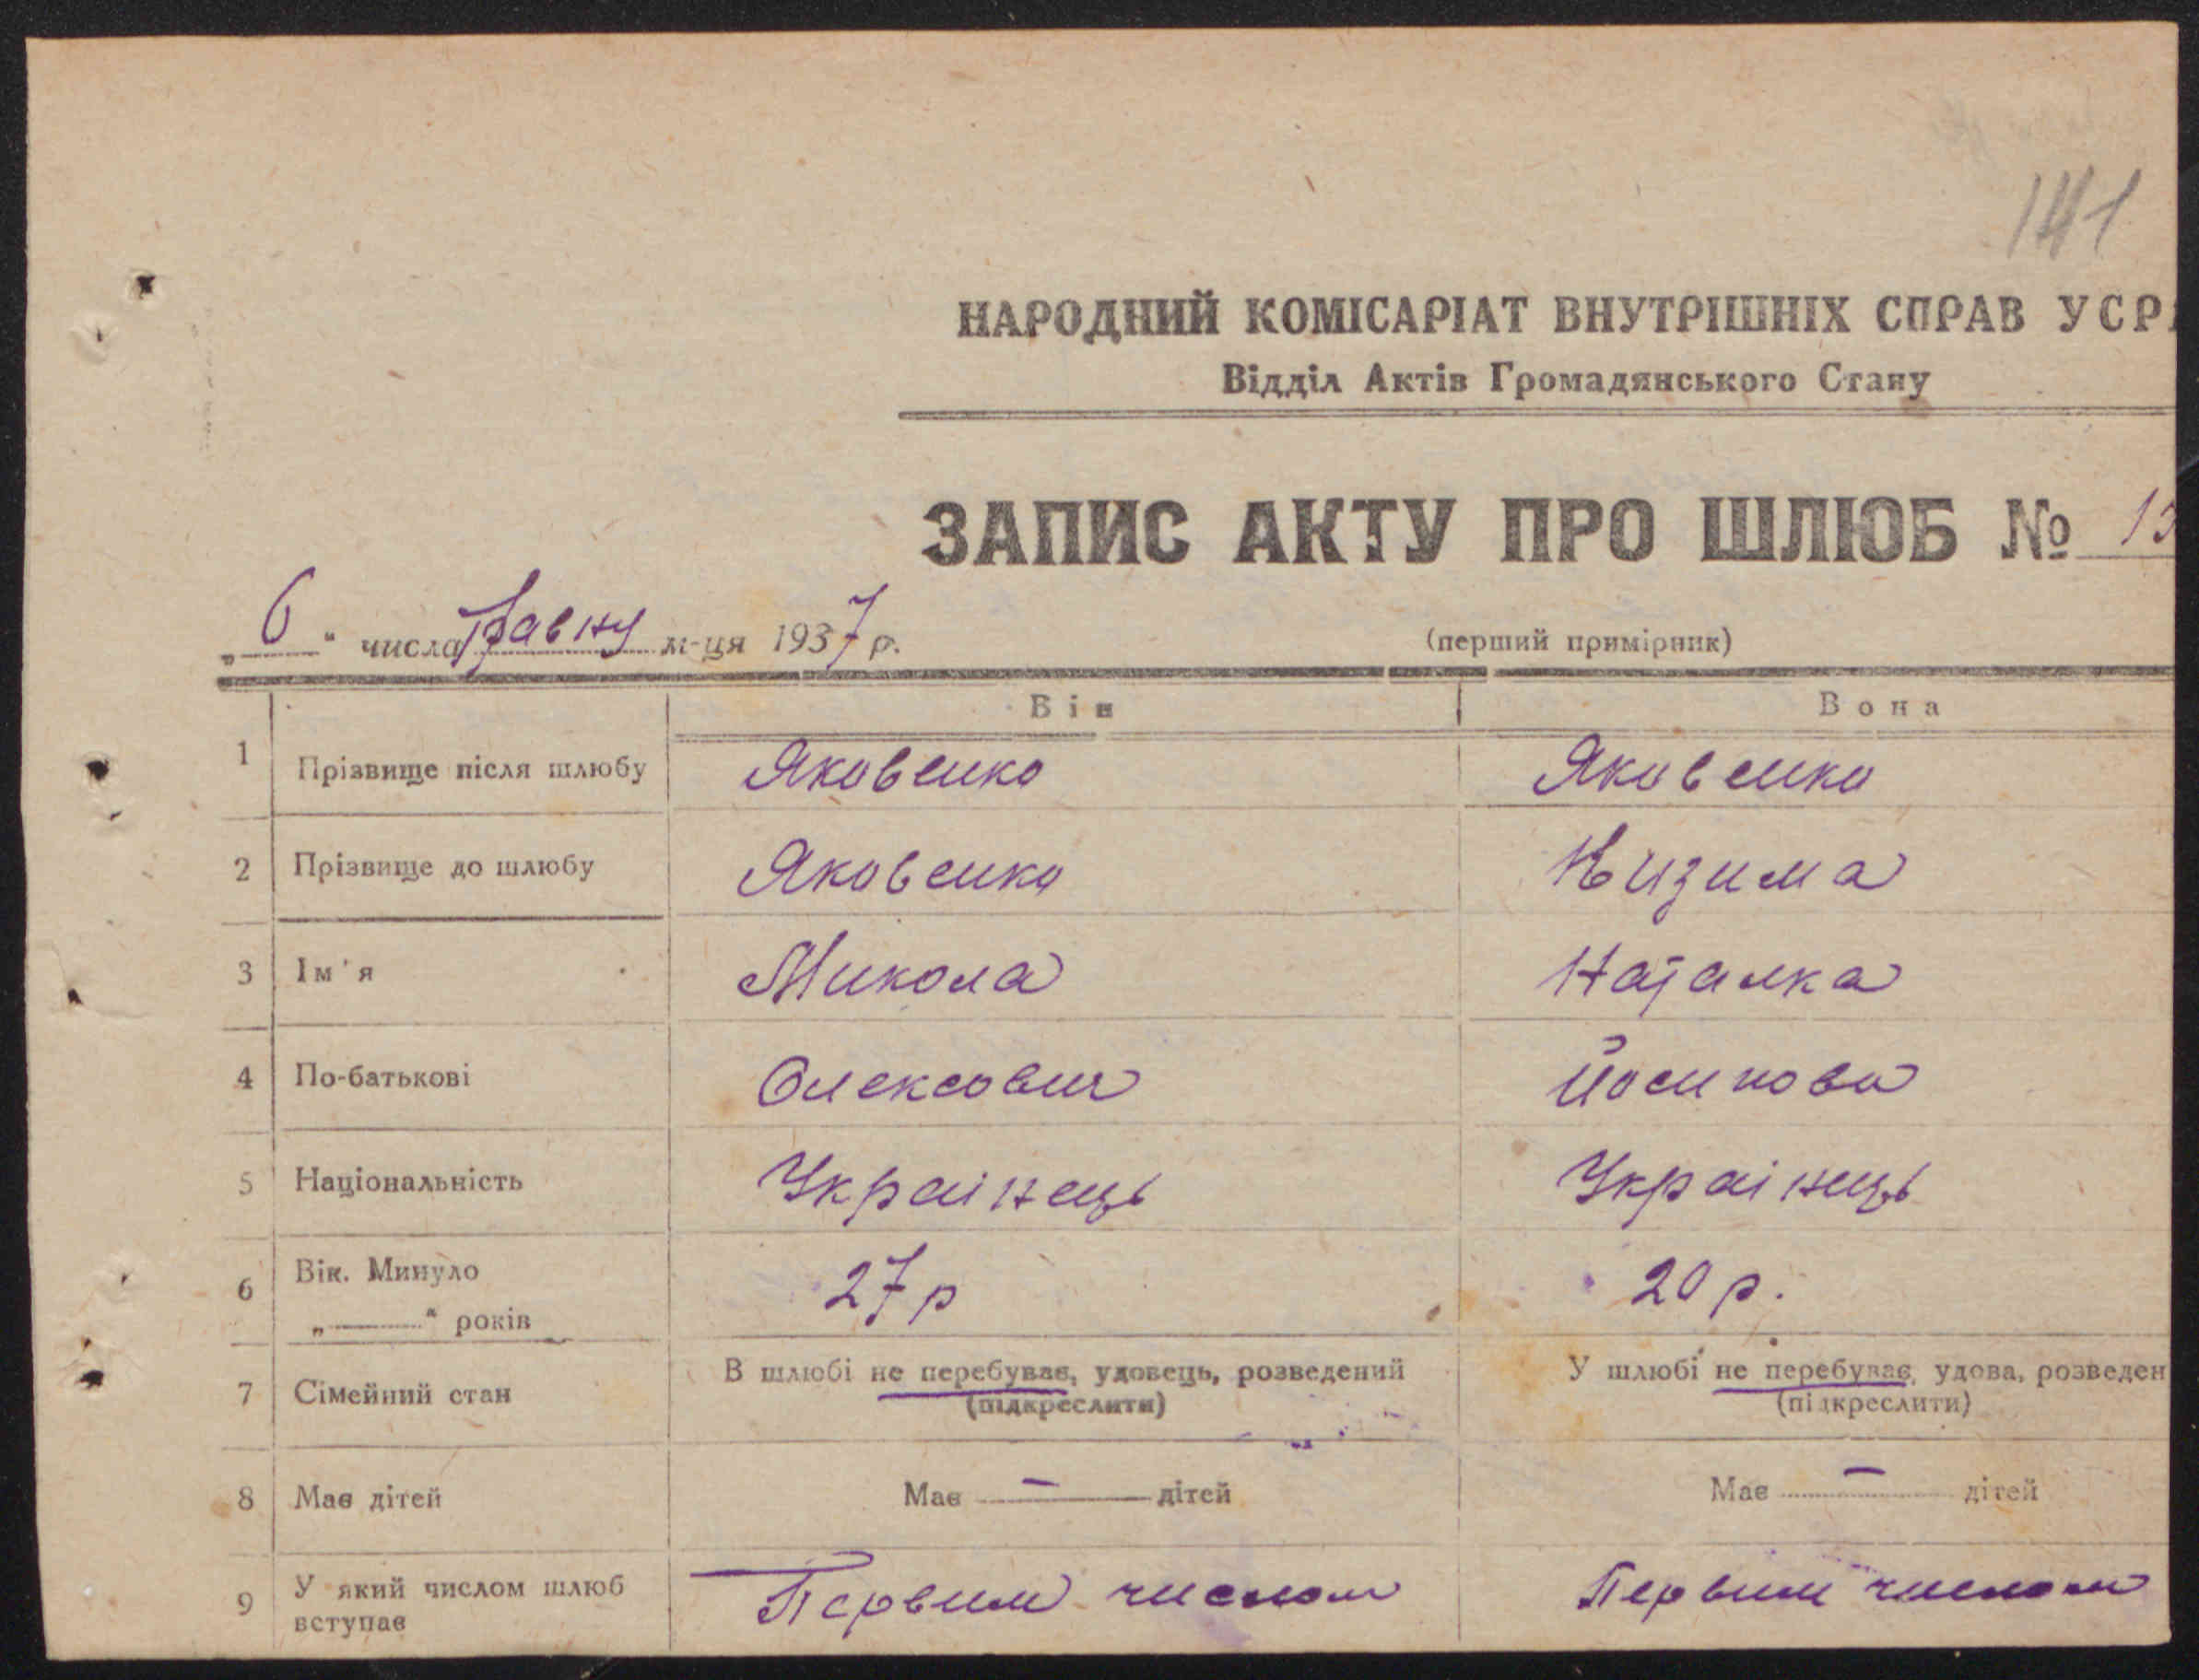 141
НАРОДНИЙ КОМІСАРІАТ ВНУТРІШНІХ СПРАВ УСР
Відділ Актів Громадянського Стану
ЗАПИС АКТУ ПРО ШЛЮБ № 15
„6“ числа травну м-ця 1937 р.
(перший примірник)
Він Вона
1 Прізвище після шлюбу Яковенко Яковенко
2 Прізвище до шлюбу Яковенко Низима
3 Ім'я Микола Наталка
4 По-батькові Олексович Йосипова
5 Національність Украінець Украінець
6 Вік. Минуло „ “ років 27 р 20 р.
7 Сімейний стан В шлюбі не перебуває, удовець, розведений (підкреслити) У шлюбі не перебуває, удова, розведен (підкреслити)
8 Має дітей Має — дітей Має — дітей
9 У який числом шлюб вступає Первим числом Первим числом